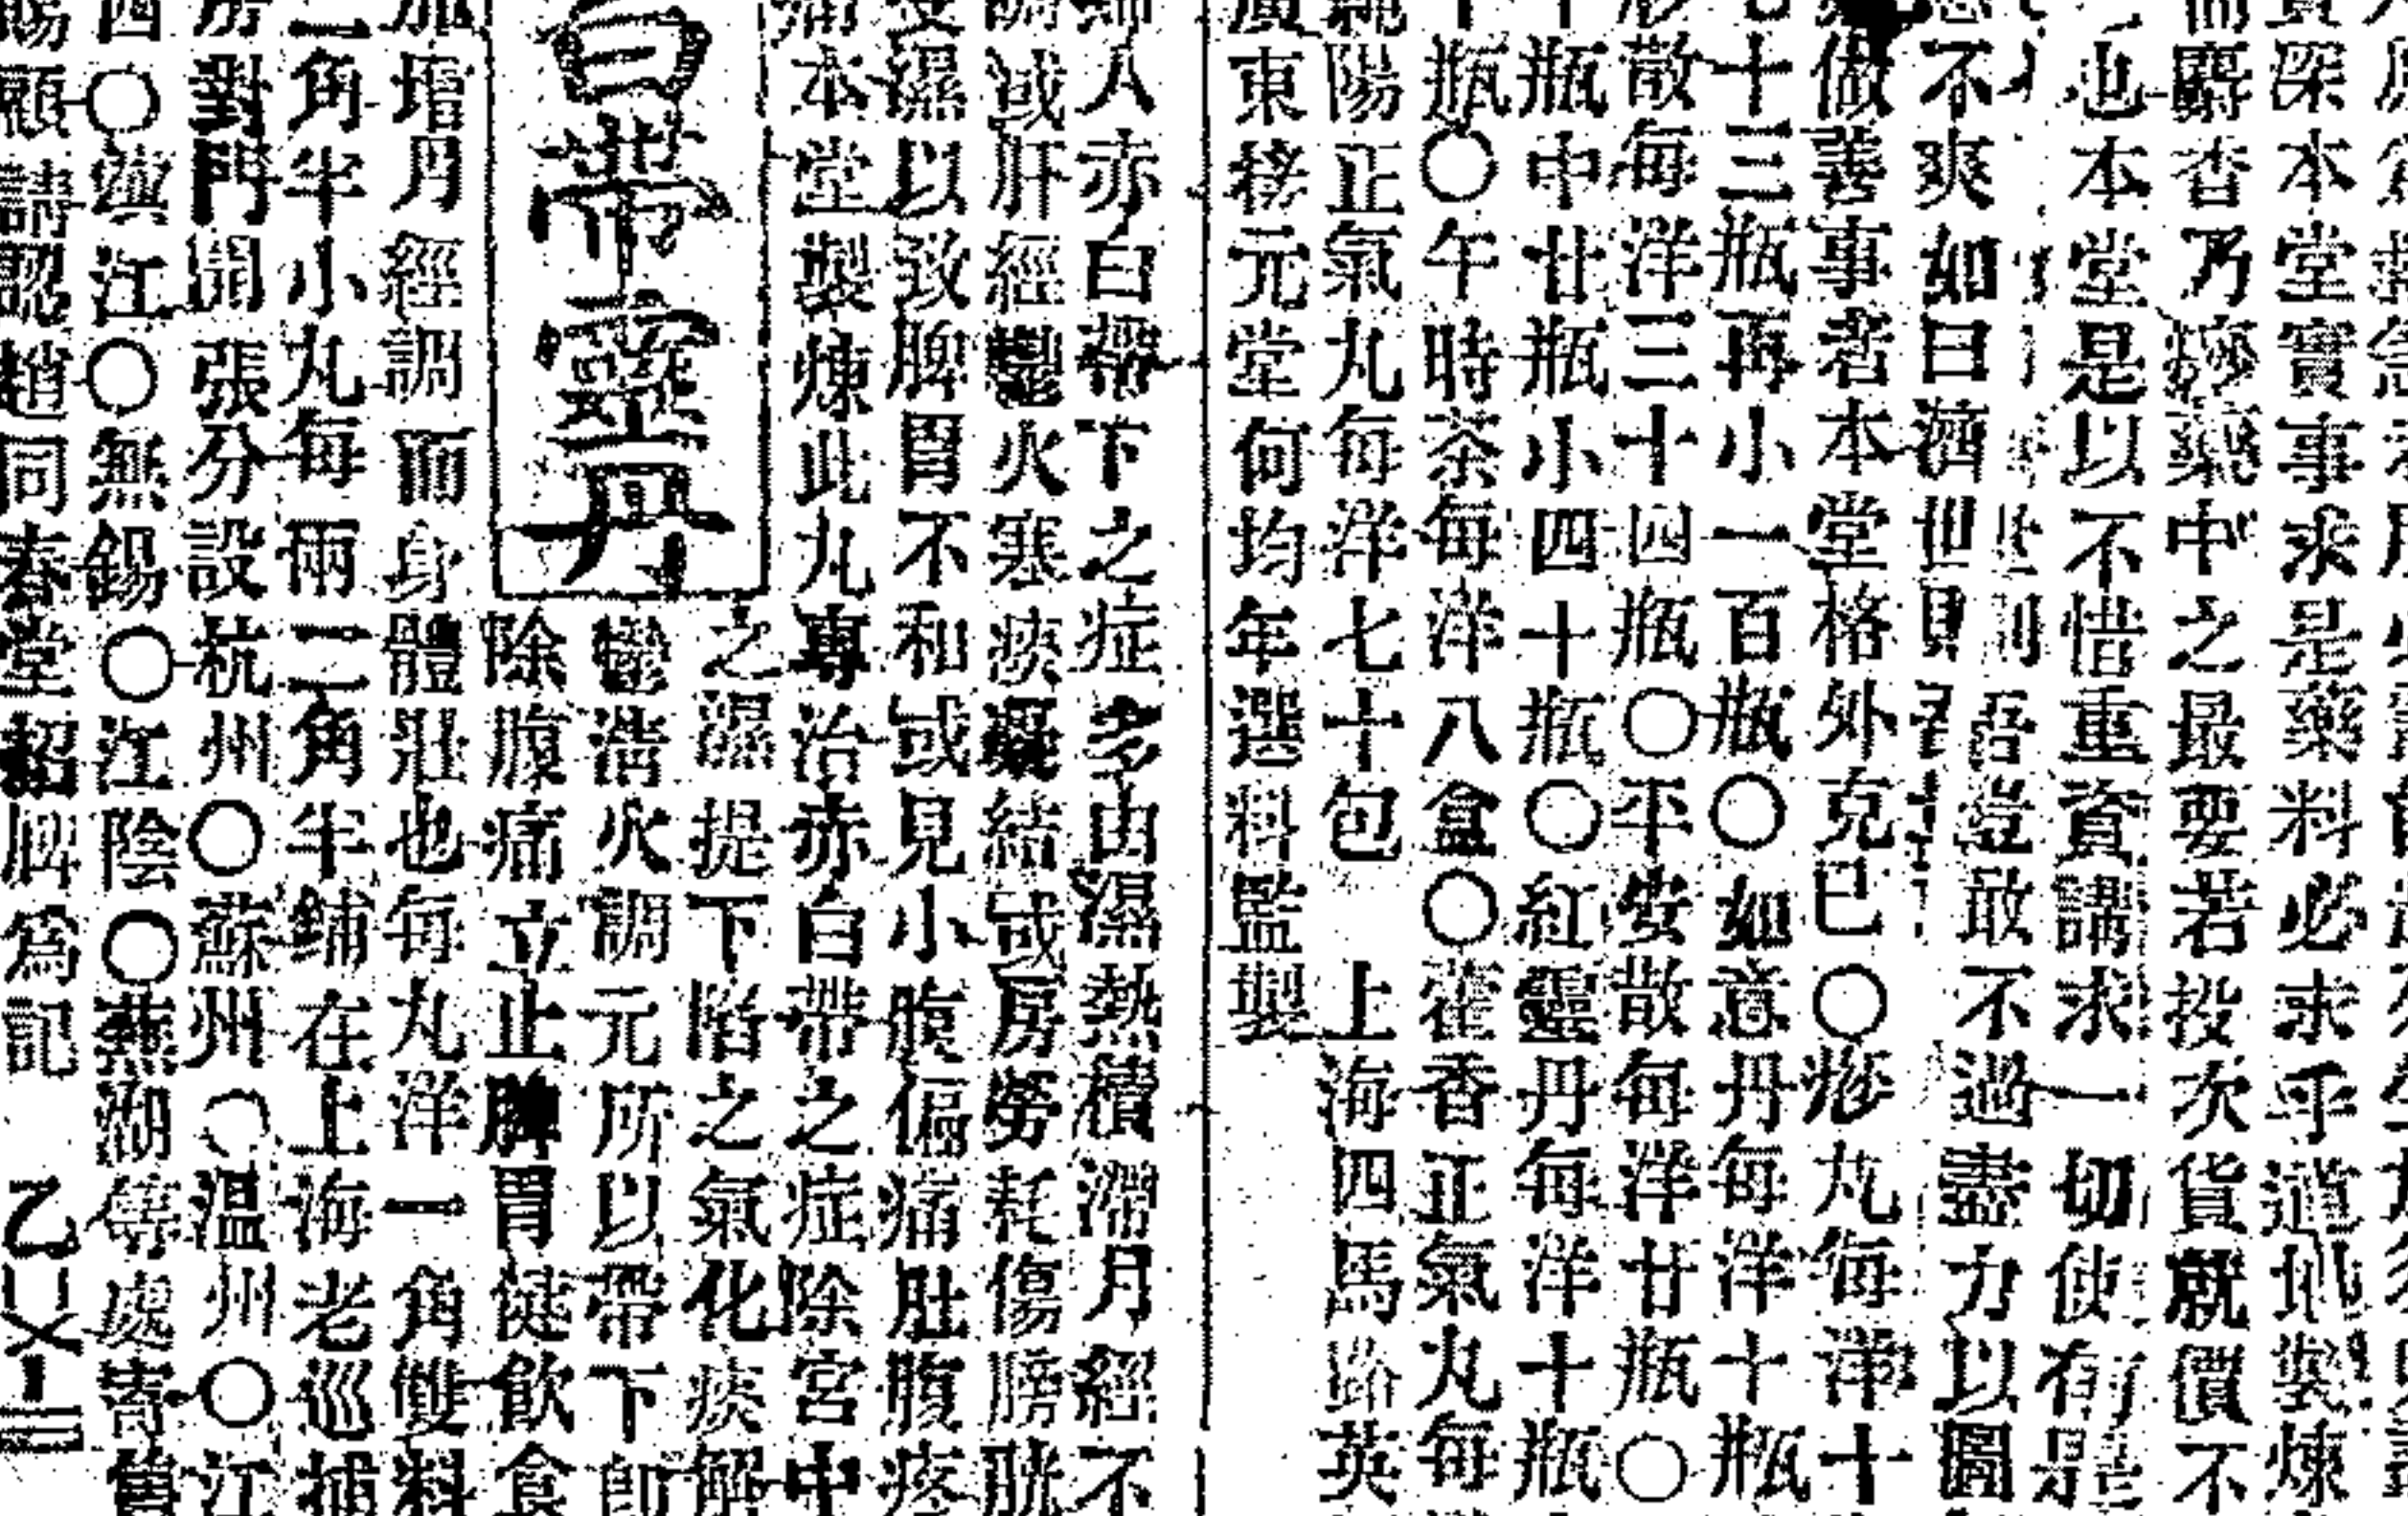 貲深本堂實事求是藥料必求乎道地製煉
而麝香乃痧藥中之最要若投次貨就價不
也本堂是以不惜重資講求一切使有
吾豈敢不過盡力以圖
不爽如曰濟世則吾
做善事者本堂格外克已〇痧丸每洋十
十三瓶再小一百瓶〇如意丹每洋十瓶
痧散每洋三十四瓶〇平安散每洋廿瓶〇
瓶中廿瓶小四十瓶〇紅靈丹每洋十瓶
瓶〇午時茶每洋八盒〇藿香正氣丸每
純陽正氣丸每洋七十包 上海四馬路英
廣東移元堂何均年選料監製
婦人赤白帶下之症多由濕熱積滯月經不
調或肝經鬱火寒痰凝結或房勞耗傷膀胱
受濕以致脾胃不和或見小腹偏痛肚腹疼
痛本堂製煉此丸專治赤白帶之症除宮中
之濕提下陷之氣化痰解
鬱清火調元所以帶下卽
白帶靈丹
除腹痛立止脾胃健飲食
加增月經調而身體壯也每丸洋一角雙料
二角半小丸每兩二角半鋪在上海老巡捕
房對門開張分設杭州〇蘇州〇温州〇江
西〇鎮江〇無錫〇江陰〇蕪湖等處寄售
賜顧請認趙同春堂招牌爲記 乙